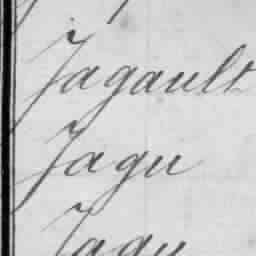 Jagault
Jagu
Jagu